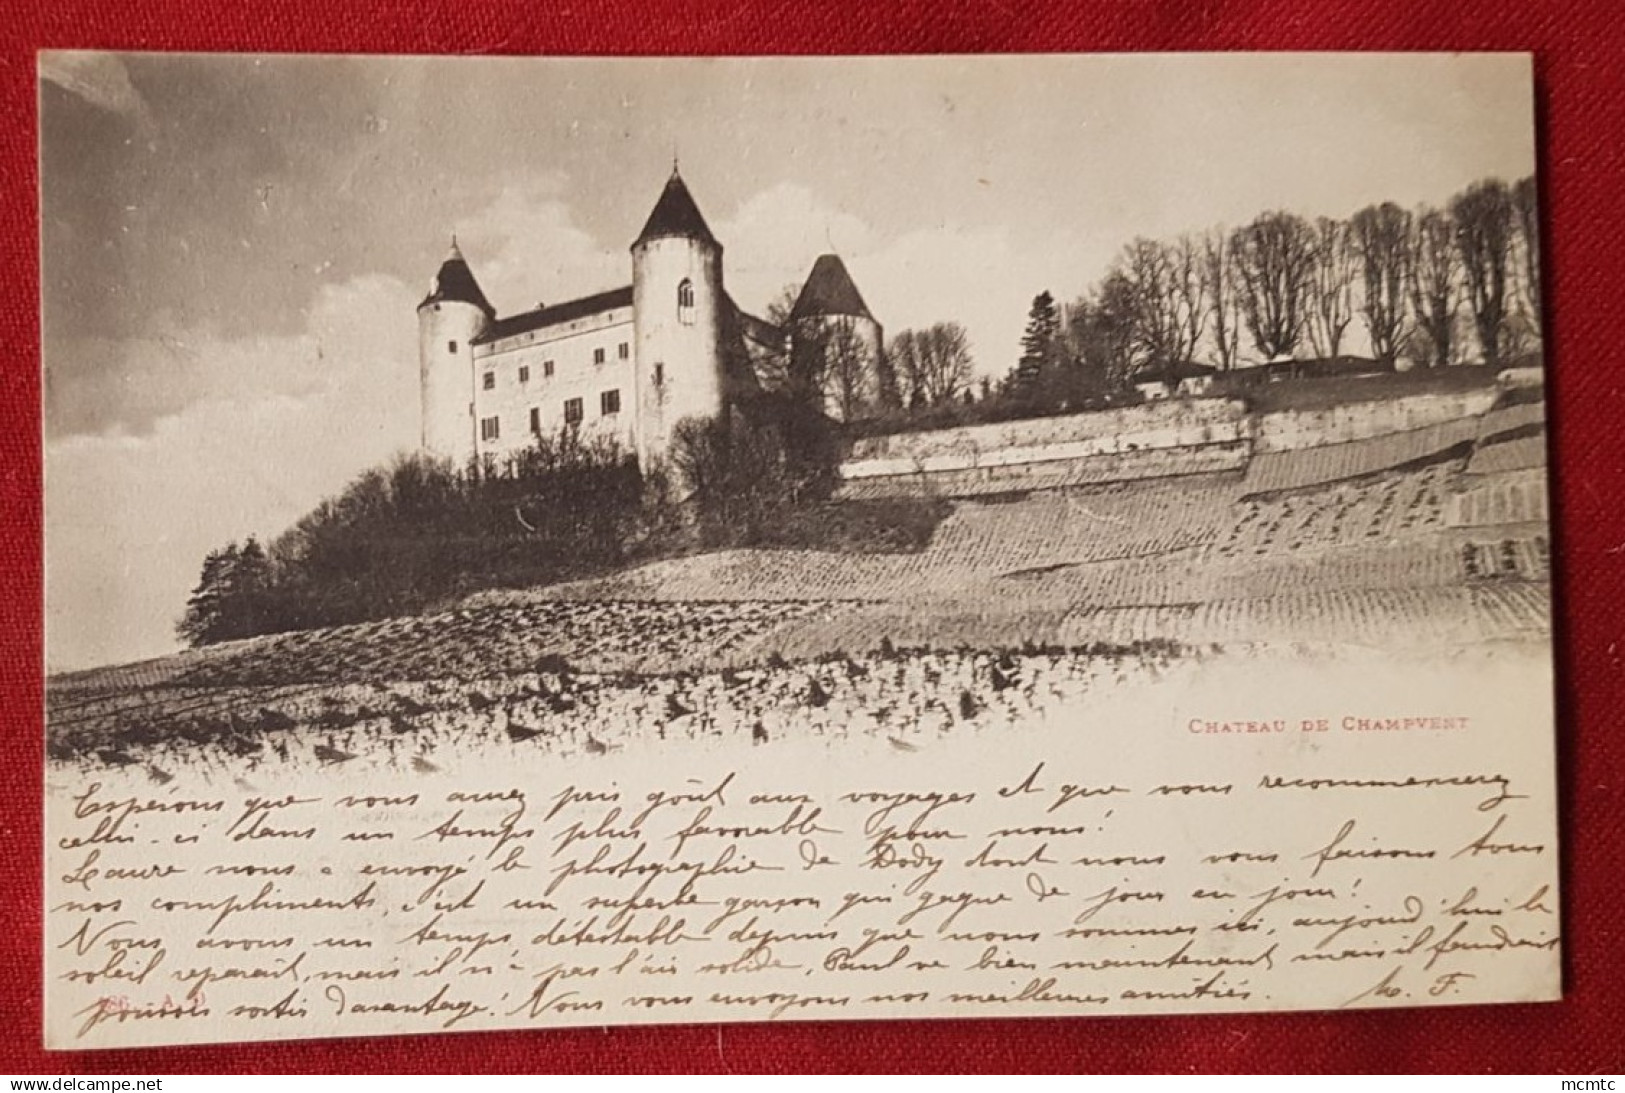 CHATEAU DE CHAMPVENT
Espérons que vous aurez pris goût aux voyages et que vous recommencerez
celui-ci dans un temps plus favorable pour nous!
Laure nous a envoyé la photographie de Dody dont nous vous faisons tous
nos compliments, c'est un superbe garçon qui gagne de jour en jour!
Nous avons un temps détestable depuis que nous sommes ici, aujourd'hui le
soleil reparaît, mais il n'a pas l'air solide, Paul va bien maintenant mais il faudrait
pouvoir sortir davantage! Nous vous envoyons nos meilleures amitiés. F.
mcmtc
www.delcampe.net